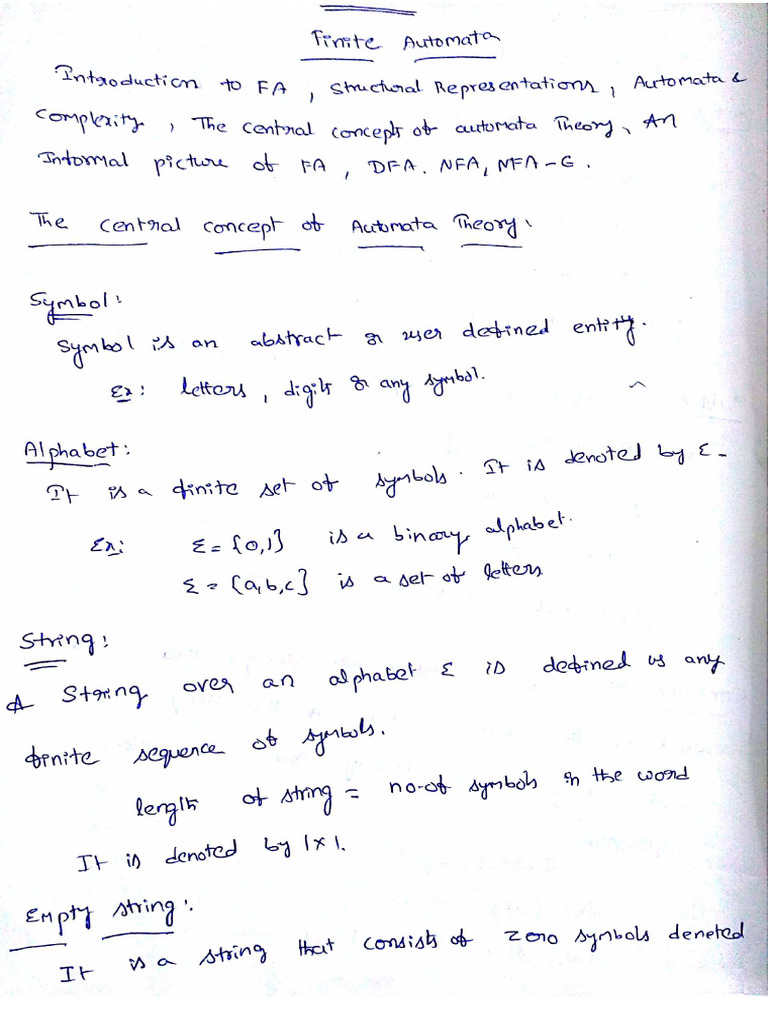 Finite Automata
Introduction to FA, Structural Representations, Automata &
Complexity, The central concept of automata Theory, An
Informal picture of FA, DFA. NFA, NFA-ε.
The central concept of Automata Theory:
Symbol:
Symbol is an abstract or user defined entity.
Ex: letters, digits or any symbol.
Alphabet:
It is a finite set of symbols. It is denoted by Σ.
Ex: Σ = {0,1} is a binary alphabet.
Σ = {a,b,c} is a set of letters
String:
A String over an alphabet Σ is defined as any
finite sequence of symbols.
length of string = no-of symbols in the word
It is denoted by |x|.
Empty string:
It is a string that consists of zero symbols deneted